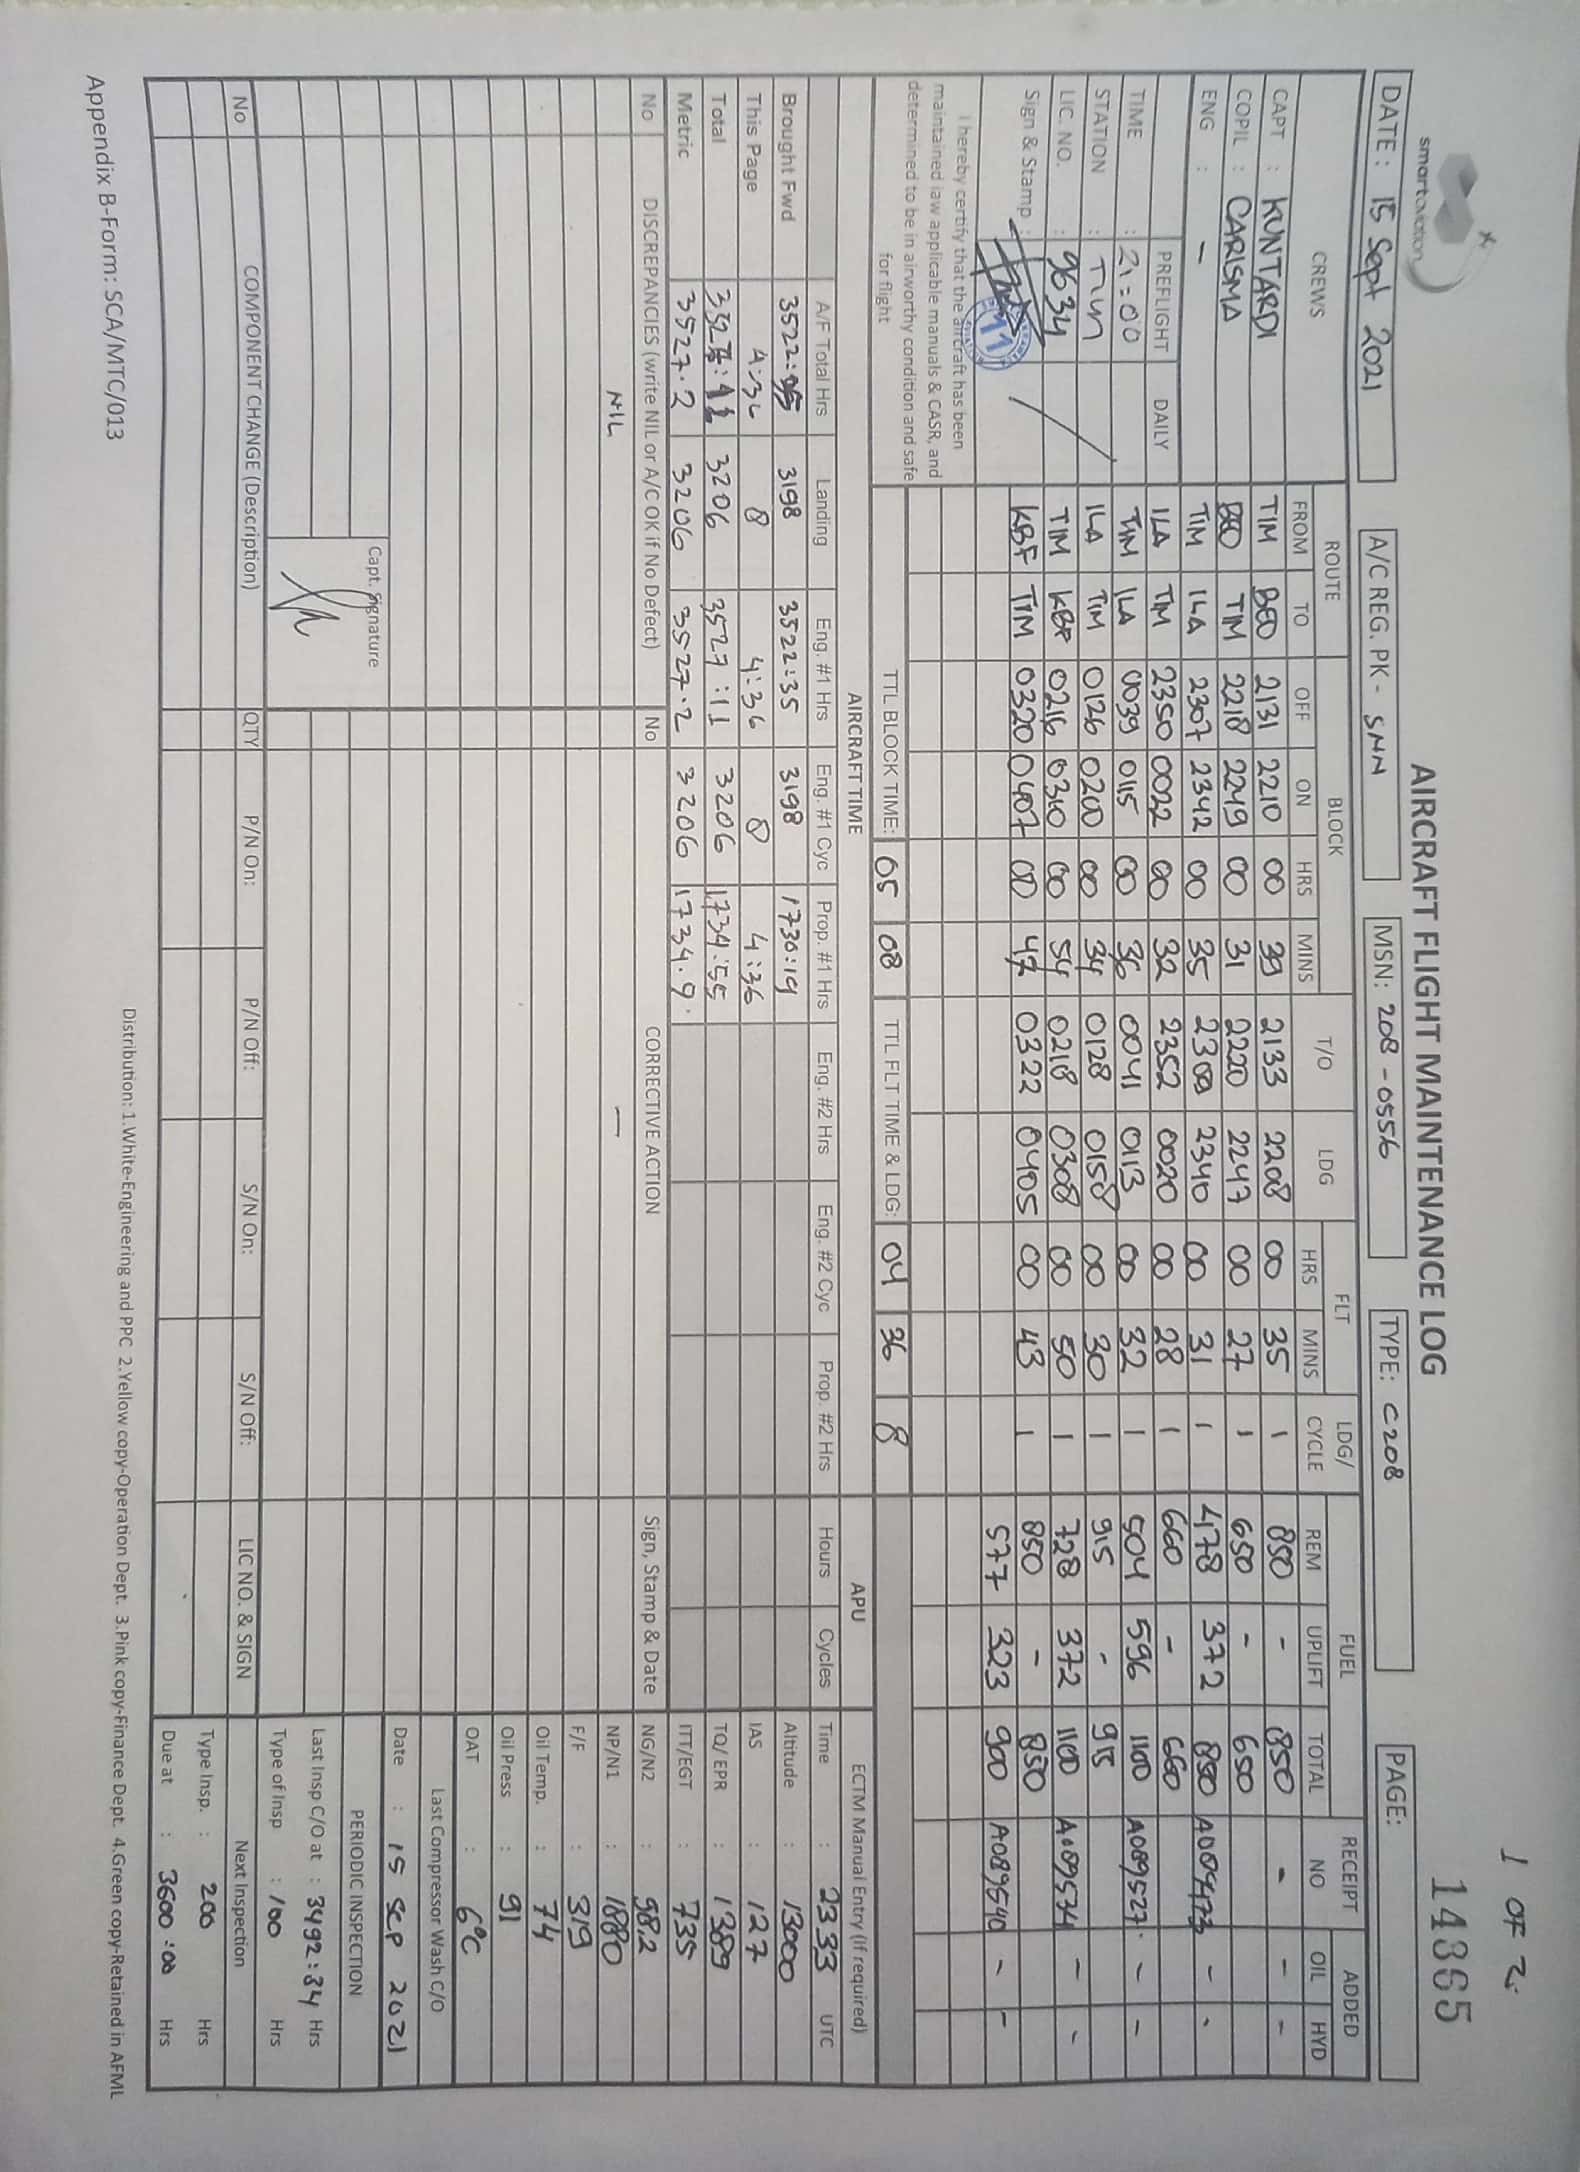 1 OF 2
smartaviation
AIRCRAFT FLIGHT MAINTENANCE LOG
14365
DATE : 15 Sept 2021 A/C REG. PK - SNN MSN: 208-0556 TYPE: C208 PAGE:
CREWS ROUTE BLOCK T/O LDG FLT LDG/ CYCLE FUEL RECEIPT NO ADDED
FROM TO OFF ON HRS MINS HRS MINS REM UPLIFT TOTAL OIL HYD
CAPT : KUNTARDI TIM BEO 2131 2210 00 39 2133 2208 00 35 1 850 - 850 - - -
COPIL : CARISMA BEO TIM 2218 2249 00 31 2220 2247 00 27 1 650 - 650
ENG : - TIM ILA 2307 2342 00 35 2309 2340 00 31 1 478 372 850 - -
PREFLIGHT DAILY ILA TIM 2350 0022 00 32 2352 0020 00 28 1 660 - 660
TIME : 21:00 TIM ILA 0039 0115 00 36 0041 0113 00 32 1 504 596 1100 A089527 - -
STATION : TIM ILA TIM 0126 0200 00 34 0128 0158 00 30 1 915 - 915
LIC. NO. : 9634 TIM KBF 0216 0310 00 54 0218 0308 00 50 1 728 372 1100 A089534 - -
Sign & Stamp : KBF TIM 0320 0407 00 47 0322 0405 00 43 1 850 - 850
577 323 900 A089540 - -
I hereby certify that the aircraft has been
maintained iaw applicable manuals & CASR, and
determined to be in airworthy condition and safe
for flight
TTL BLOCK TIME: 05 08 TTL FLT TIME & LDG: 04 36 8
AIRCRAFT TIME APU ECTM Manual Entry (If required)
A/F Total Hrs Landing Eng. #1 Hrs Eng. #1 Cyc Prop. #1 Hrs Eng. #2 Hrs Eng. #2 Cyc Prop. #2 Hrs Hours Cycles Time : 2333 UTC
Brought Fwd 3522: 3198 3522:35 3198 1730:19 Altitude : 13000
This Page 4:36 8 4:36 8 4:36 IAS : 127
Total 3206 3527:11 3206 1734:55 TQ/EPR : 1389
Metric 3527.2 3206 3527.2 3206 1734.9 ITT/EGT : 735
No DISCREPANCIES (write NIL or A/C OK if No Defect) No CORRECTIVE ACTION Sign, Stamp & Date NG/N2 : 98.2
NIL - NP/N1 : 1880
F/F : 319
Oil Temp. : 74
Oil Press : 91
OAT : 6°C
Last Compressor Wash C/O
Date : 15 SEP 2021
Capt. Signature
PERIODIC INSPECTION
Last Insp C/O at : 3492:34 Hrs
Type of Insp : 100 Hrs
No COMPONENT CHANGE (Description) QTY P/N On: P/N Off: S/N On: S/N Off: LIC NO. & SIGN Next Inspection
Type Insp. : 200 Hrs
Due at : 3600:00 Hrs
Distribution: 1.White-Engineering and PPC 2.Yellow copy-Operation Dept. 3.Pink copy-Finance Dept. 4.Green copy-Retained in AFML
Appendix B-Form: SCA/MTC/013